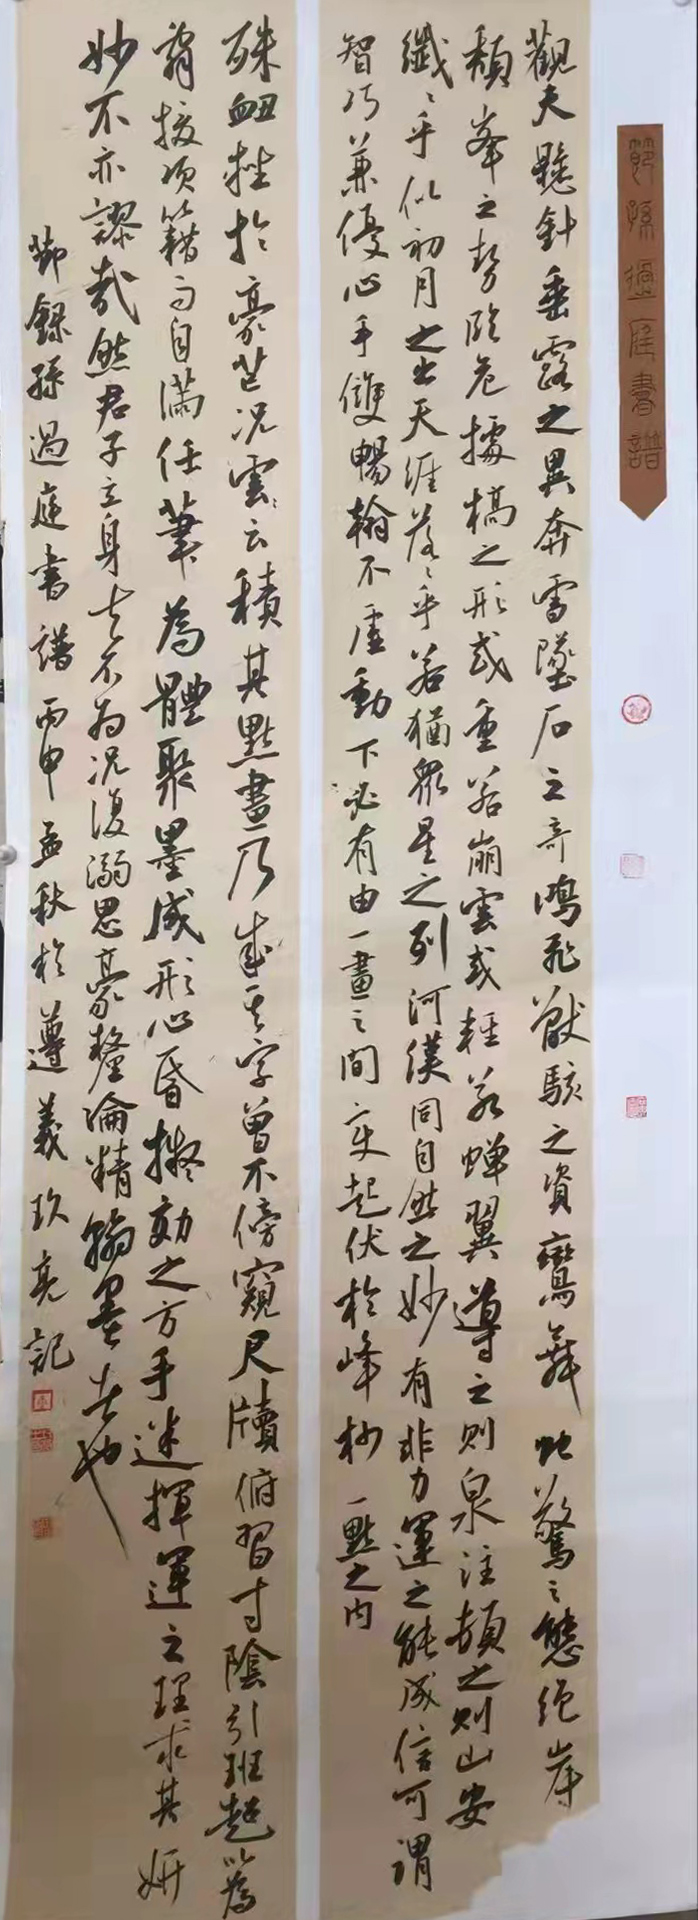 節孫過庭書譜
觀夫懸針垂露之異奔雷墜石之奇鴻飛獸駭之資鸞舞虵驚之態絕岸
頹峯之勢臨危據槁之形或重若崩雲或輕若蟬翼導之則泉注頓之則山安
纖纖乎似初月之出天涯落落乎若猶眾星之列河漢同自然之妙有非力運之能成信可謂
智巧兼優心手雙暢翰不虛動下必有由一畫之間變起伏於峰杪一點之內
殊衄挫於豪芒況云積其點畫乃成其字曾不傍窺尺牘俯習寸陰引班超以為
前援項籍而自滿任筆為體聚墨成形心昏擬効之方手迷揮運之理求其妍
妙不亦謬哉然君子立身不為況復溺思豪釐淪精翰墨者也
節錄孫過庭書譜丙申孟秋於遵義玖亮記